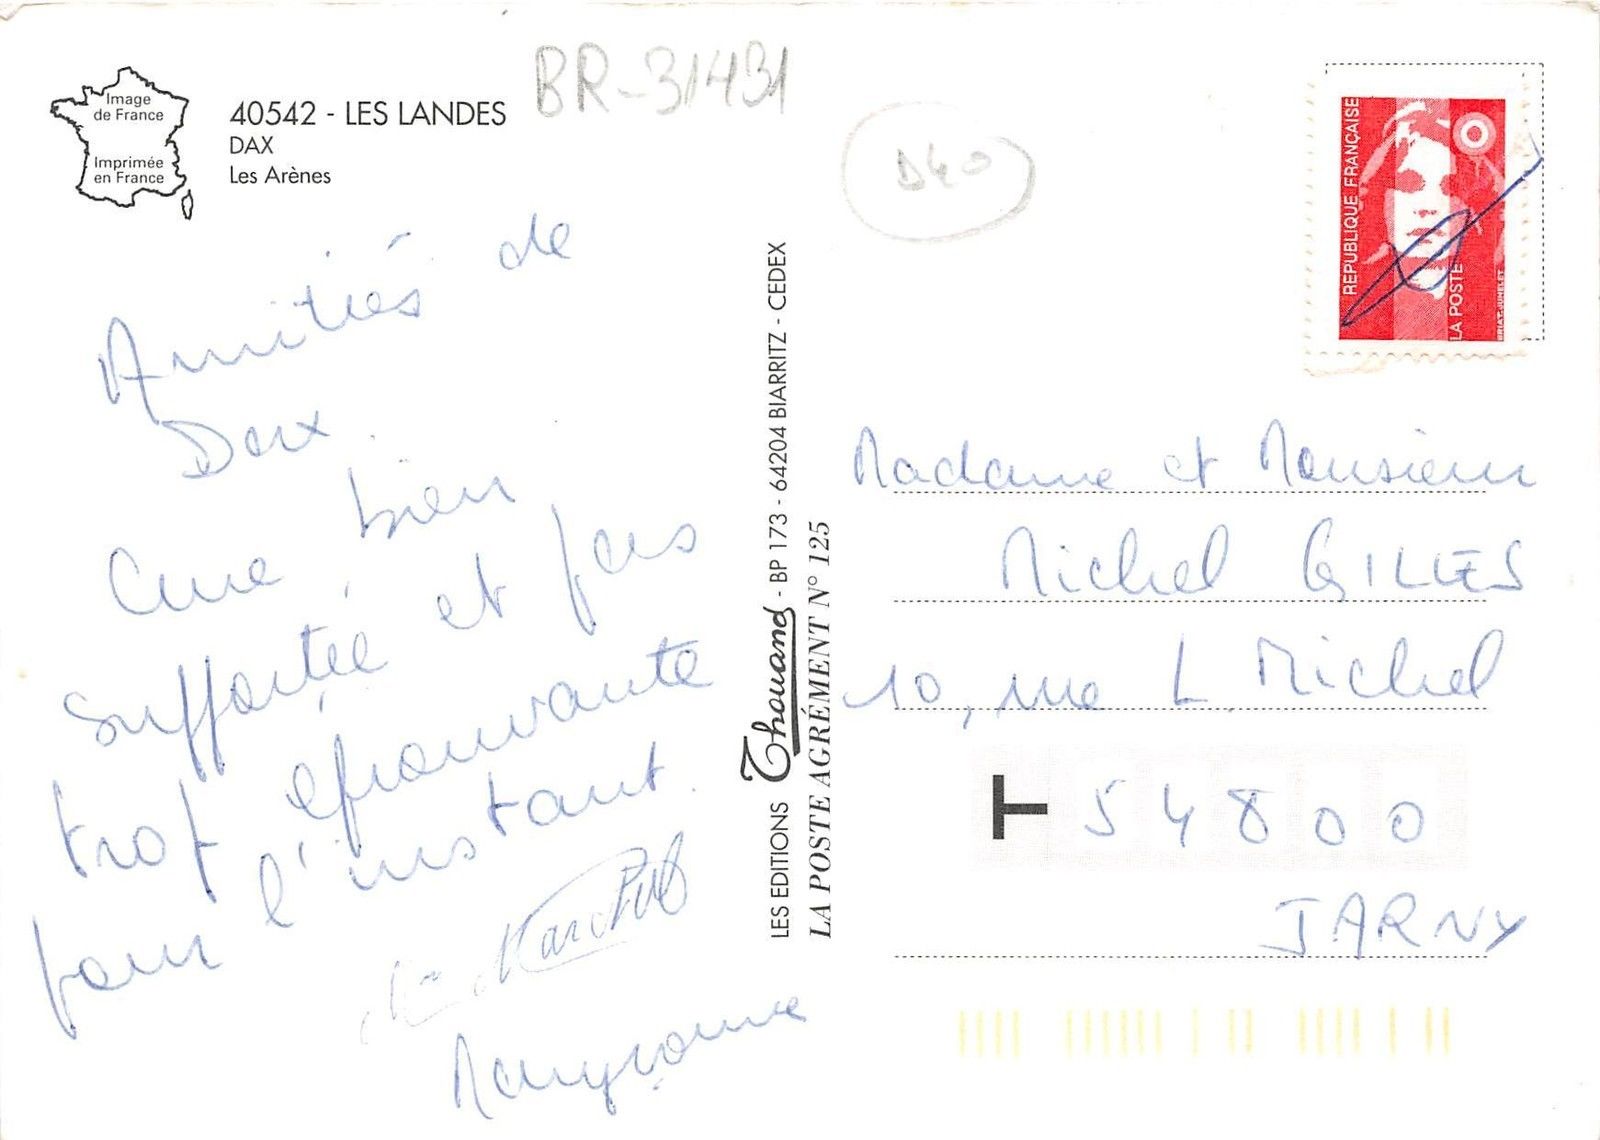 Image
de France
Imprimée
en France
40542 - LES LANDES
DAX
Les Arènes
BR-31431
D40
REPUBLIQUE FRANÇAISE
LA POSTE
BRIAT-JUMELET
Amitiés de
Dax.
Cure bien
supportée et pas
trop éprouvante
pour l'instant.
LES EDITIONS Thouand - BP 173 - 64204 BIARRITZ - CEDEX
LA POSTE AGRÉMENT N° 125
Madame et Monsieur
Michel GILLES
10, rue L. Michel
T 54800
JARNY